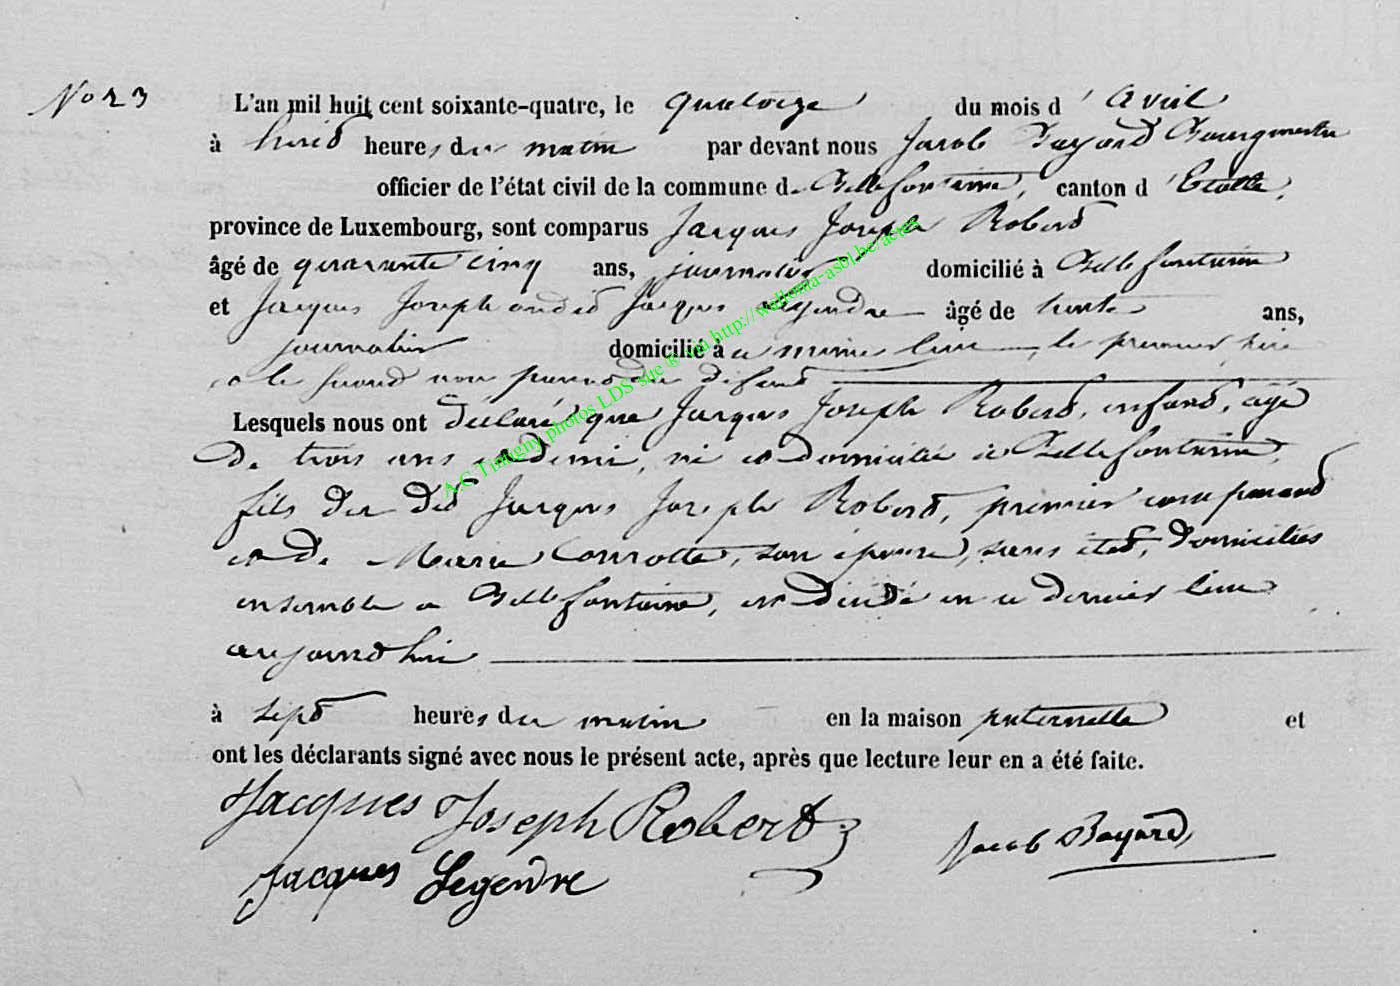 No 23
L'an mil huit cent soixante-quatre, le quatorze du mois d'avril
à huit heures du matin par devant nous Jacob Bayard Bourgmestre
officier de l'état civil de la commune de Bellefontaine, canton d'Etalle,
province de Luxembourg, sont comparus Jacques Joseph Robert
âgé de quarante cinq ans, journalier domicilié à Bellefontaine
et Jacques Joseph Jacques Legendre âgé de trente ans,
journalier domicilié à ce même lieu, le premier père
et le second non parent du défunt
Lesquels nous ont déclaré que Jacques Joseph Robert, enfant, âgé
de trois ans et demi, né et domicilié à Bellefontaine,
fils du dit Jacques Joseph Robert, premier comparant
et de Marie Conrotte, son épouse, sans état, domiciliés
ensemble à Bellefontaine, est décédé en ce dernier lieu
aujourd'hui
à sept heures du matin en la maison paternelle et
ont les déclarants signé avec nous le présent acte, après que lecture leur en a été faite.
Jacques Joseph Robert
Jacob Bayard
Jacques Legendre
A.C. Tintigny photos LDS sue ® via http://wallonia-asbl.be/actes